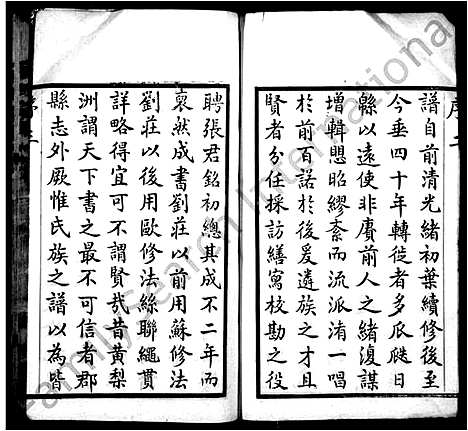 序二
譜自前清光緒初葉續修後至
今垂四十年轉徙者多瓜瓞日
緜以遠使非賡前人之緒復謀
增輯思昭繆紊而流派淆一唱
於前百諾於後爰遴族之才且
賢者分任採訪繕寫校勘之役
聘張君銘初總其成不二年而
裒然成書劉莊以前用蘇修法
劉莊以後用歐修法絲聯繩貫
詳略得宜可不謂賢哉昔黃梨
洲謂天下書之最不可信者郡
縣志外厥惟氏族之譜以為皆
序三
FamilySearch International
FamilySearch International